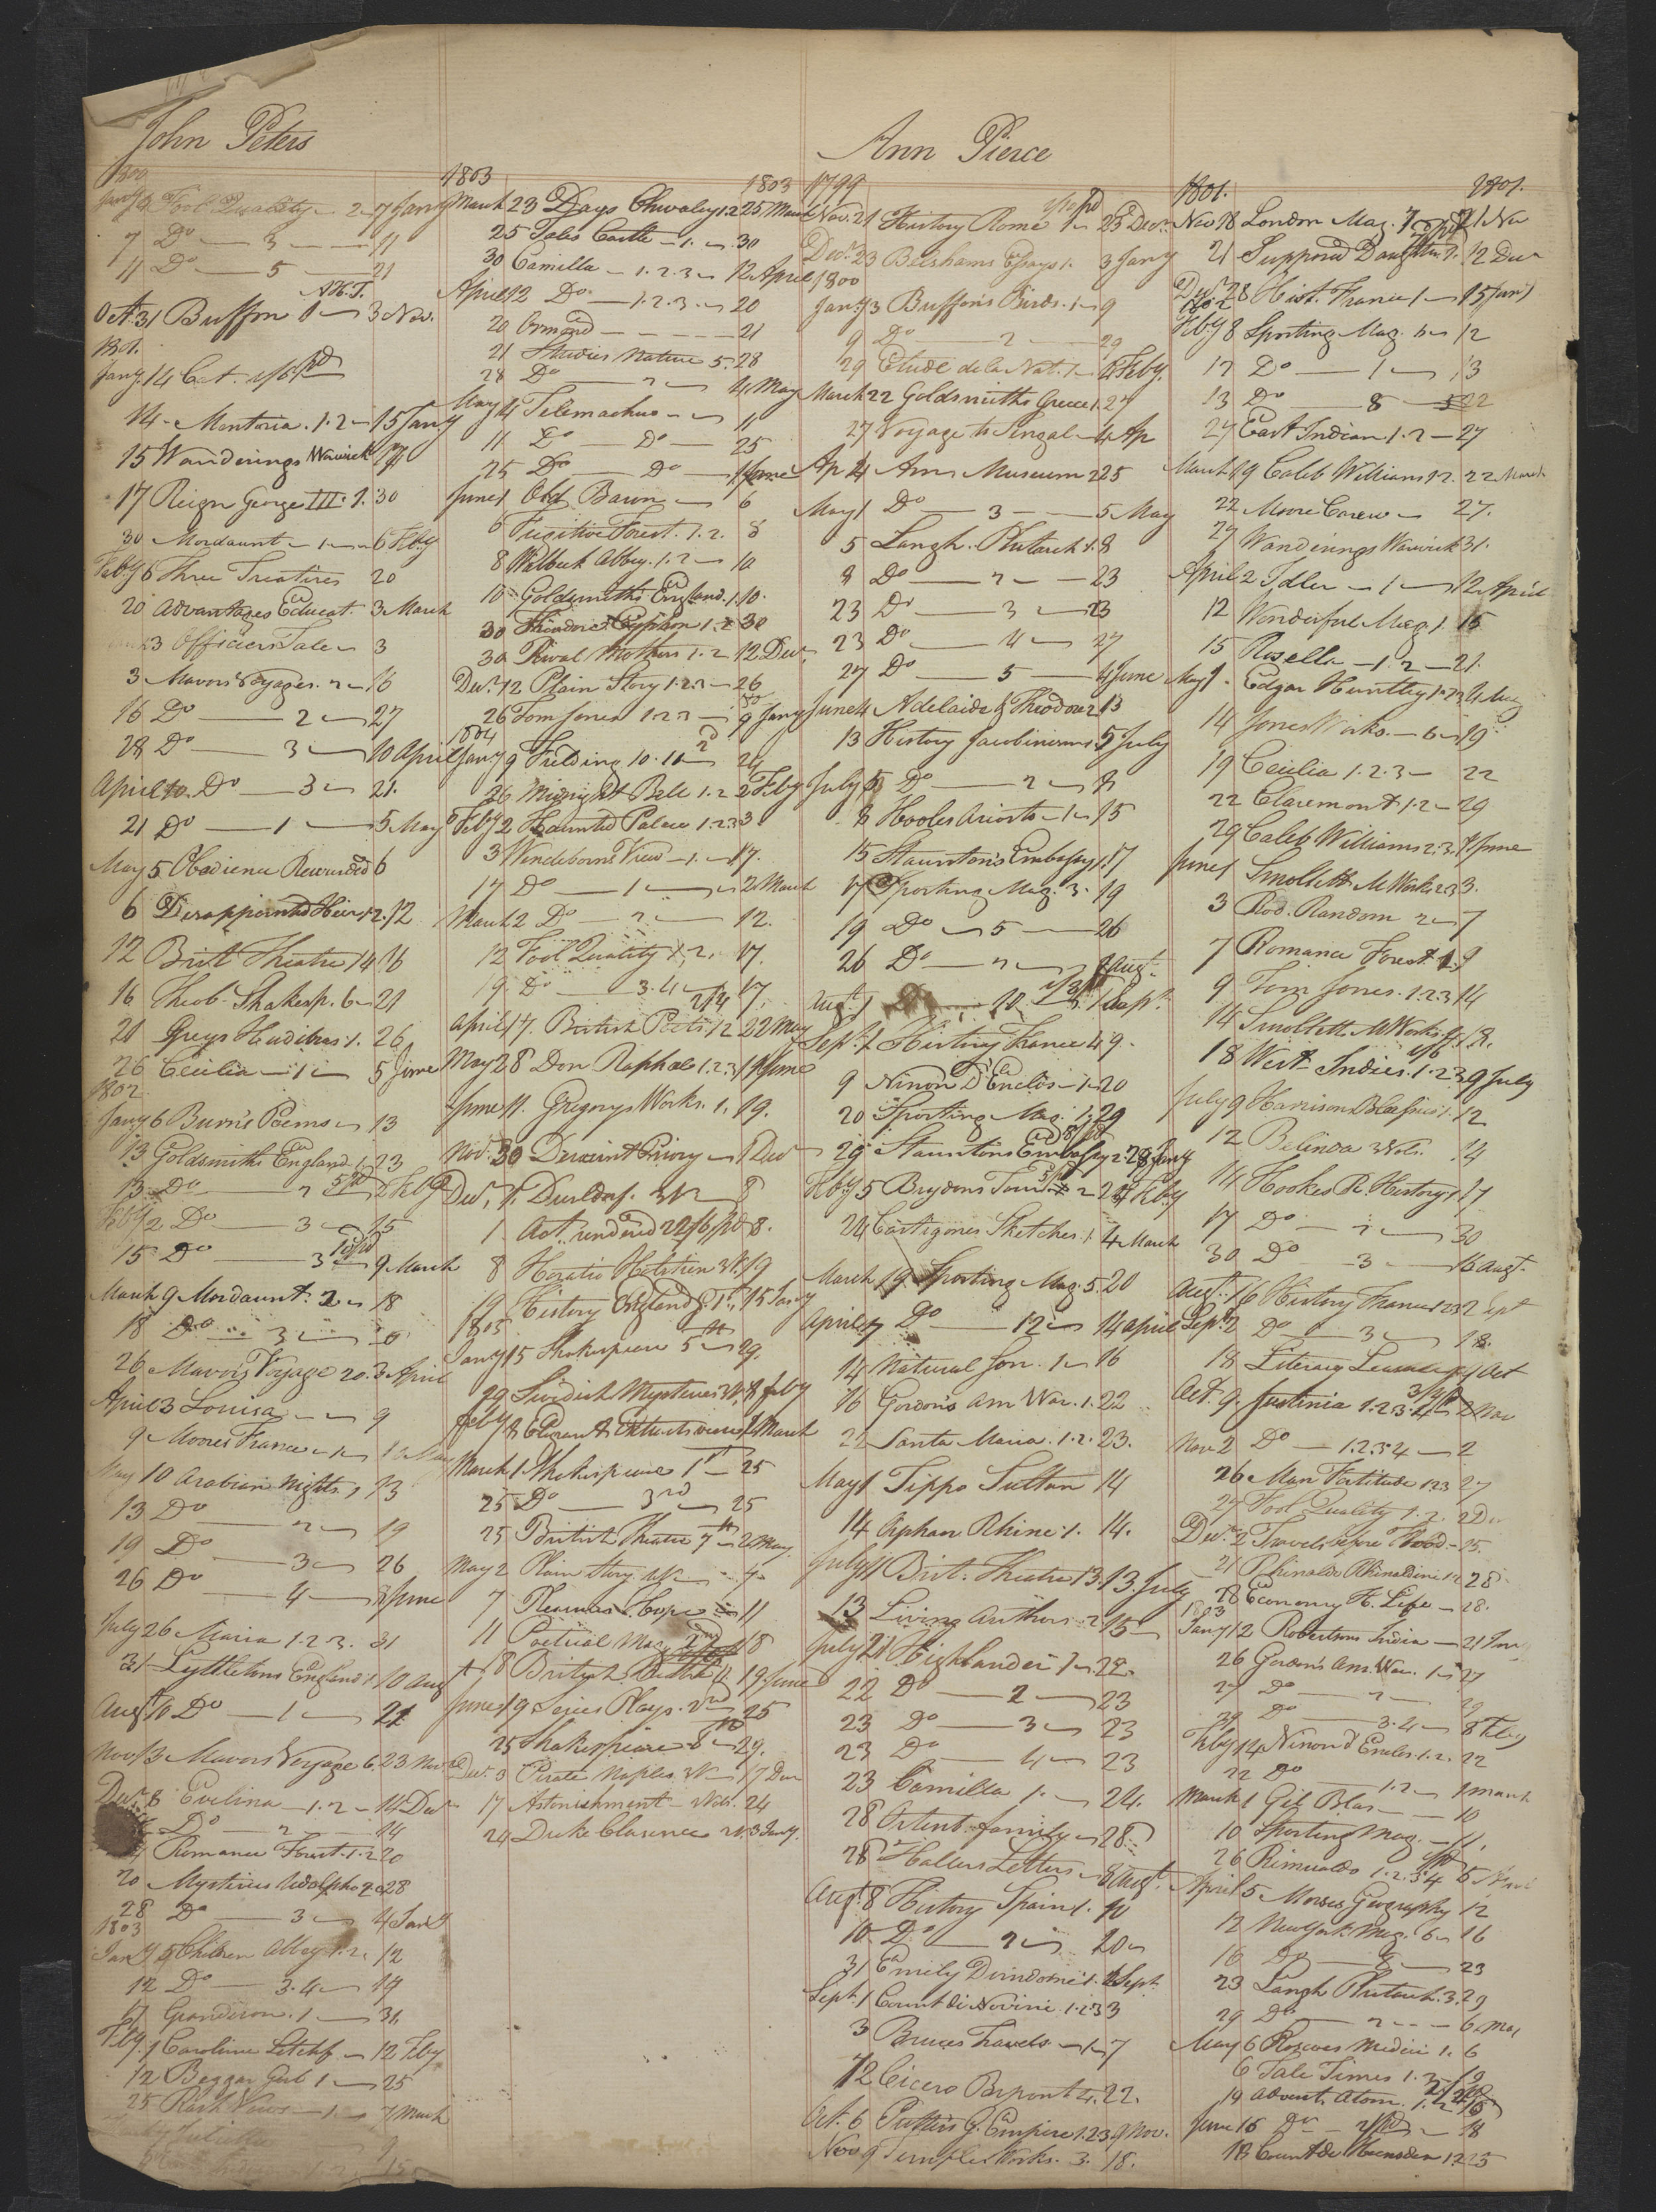 John Peters
1800
Jany 3 Fool Quality 2 7 Jany
7 Do 3 11
11 Do 5 21
N.Y.
Oct. 31 Buffon 1 3 Nov.
1801.
Jany. 14 Cat. 1/6 Pd
14 Mentoria. 1.2 15 Jany
15 Wanderings Warwick 17
17 Reign George III. 1. 30
30 Mordaunt 1 6 Feby
Feby 6 Three Treatises 20
20 Advantages Educat. 3 March
23 Officers Tale 3
3 Mavors Voyages. 2 16
16 Do 2 27
28 Do 3 10 April
April 10. Do 3 21.
21 Do 1 5 May
May 5 Obedience Rewarded 6
6 Disappointed Heir 1.2. 12
12 Brit Theatre 14 16
16 Theob. Shakesp. 6 21
21 Greys Hudibras 1. 26
26 Cecilia 1 5 June
1802
Jany 6 Burns Poems 13
13 Goldsmiths England 1 23
13 Do 2 2 Feby
Feby 2 Do 3 15
15 Do 3 9 March
March 9 Mordaunt. 2 18
18 Do 3 26
26 Mavors Voyage 20. 3 April
April 3 Louisa 9
9 Moores France 1 10 May
May 10 Arabian Nights. 1 13
13 Do 2 19
19 Do 3 26
26 Do 4 June
July 26 Maria 1.2.3. 31
31 Lyttletons England 1 10 Aug
Aug 10 Do 1 21
Nov 13 Mavors Voyage 6. 23 Nov
Decr. 8 Evelina 1.2 14 Decr
Do 2 14
Romance Forest. 1.2 20
20 Mysteries Udolpho 2 28
28 Do 3 4 Jany
1803
Jany 5 Children Abbey 1.2 12
12 Do 3.4 19
Grandison. 1 31.
Feby. 1 Caroline Litchf 12 Feby
12 Beggar Girl 1 25
25 Rash Vows 1 7 March
Julietta 9
1803 1803
March 23 Days Chivalry 1.2 25 March
25 Tales Castle 1. 30
30 Camilla 1.2.3 12 April
April 12 Do 1.2.3. 20
20 Ormond 21
21 Studies Nature 5. 28
28 Do 2 4 May
May 4 Telemachus 11
11 Do Do 25
25 Do Do 1 June
June 1 Old Baron 6
6 Fugitive Forest. 1.2. 8
8 Walbeck Abbey. 1.2 10
10 Goldsmiths England. 1. 10.
30 Theodore Cyphon 1.2 30
30 Rival Mothers 1.2 12 Decr.
Decr. 12 Plain Story 1.2.3 26
26 Tom Jones 1.2.3 9 Jany
1804
Jany 9 Fielding 10.11 24
26 Midnight Bell 1.2 2 Feby
Feby 2 Haunted Palace 1.2.3 3
3 Wendeborns View 1. 17.
17 Do 1 2 March
March 2 Do 2 12.
12 Fool Quality 1,2, 17.
19 Do 3.4 17.
2/4
April 17. British Poets. 12 22 May
May 28 Don Raphael 1.2.3 11 June
June 11. Gregorys Works. 1. 19.
Nov. 30 Derwent Priory 1 Decr
Decr, 1. Dusseldorf. 3 V 8
1 Act. rendered 22/6 pd 8.
8 Horatio Holstein 3 V. 19
19 History England G. 1st, 15 Jany
1805
Jany 15 Shakespeare 5th 29.
29 Swedish Mysteries 3 V. 8 Feby
Feby 8 1 March
March 1 Shakespeare 1st 25
25 Do 3rd 25
25 British Theatre 7th 2 May
May 2 Plain Story 4 V 7
7 Pleasures Hope 11
11 Poetical Mag 2nd 18
18 British Theatre 11 19 June
June 19 Series Plays. 2nd 25
25 Shakespeare 8th 29.
Decr. 3 Pirate Naples. 3 V 17 Decr
17 Astonishment 2 Vols. 24
24 Duke Clarence 2 V. 3 Jany.
Ann Pierce
1799
Nov. 21 History Rome 1 23 Decr.
Decr. 23 Belshams Essays 1. 3 Jany
1800
Jany. 3 Buffons Birds. 1 9
9 Do 2 29
29 Etude de la Nat. 1 Feby.
March 22 Goldsmiths Greece 1. 27
27 Voyage to Senegal 4 Ap
Ap 4 Am. Museum 2 25
May 1 Do 3 5 May
5 Langh. Plutarch 1. 8
8 Do 2 23
23 Do 3 23
23 Do 4 27
27 Do 5 4 June
June 4 Adelaide & Theodore 2 13
13 History Jacobinism 1. 5 July
July 5 Do 2 8
8 Hooles Ariosto 1 15
15 Stauntons Embassy 1. 17
17 Sporting Mag. 3. 19
19 Do 5 26
26 Do 7 1 Aug.
Augt. 1 Do 10 1 Sept.
Sept. 1 History France 4 9.
9 Ninon D'Enclos 1 20
20 Sporting Mag. 1. 29
29 Stauntons Embassy 2. 28 Jany
Feby 5 Brydons Tour 2 24 Feby
24 Castigones Sketches. 1. 4 March
March 19. Sporting Mag. 5. 20
April 7 Do 12 14 April
14 Natural Son. 1 16
16 Gordons Am War. 1. 22
22 Santa Maria. 1.2. 23.
May 1 Tippo Sultan 14
14 Orphan Rhine 1. 14.
July 11 Brit. Theatre 13. 13 July
13 Living Authors 2 15
July 21 Highlander 1 22.
22 Do 2 23
23 Do 3 23
23 Do 4 23
23 Camilla 1. 24.
28 Ortenb. Family 28
28 Hallers Letters 8 Augt.
Augt. 8 History Spain 1. 10
10 Do 2 20
31 Emily Dundorne 1. 1 Sept.
Sept. 1 Count di Novini 1.2.3 3
3 Bruces Travels 1 7
12 Cicero Brpont 4. 22.
Oct. 6 Putters G. Empire 1.2.3 9 Nov.
Nov 9 Temples Works. 3. 18.
1801. 1801.
Nov 18 London Mag. 7 21 Nov
21 Supposed Daughter. 1. 12 Decr
Decr 28 Hist. France 1 15 Jany
1802
Feby 8 Sporting Mag. 6 12
12 Do 1 13
13 Do 8 22
27 East Indian 1.2 27
March 19 Caleb Williams 1.2. 22 March
22 Moore Carew 27.
27 Wanderings Warwick 31.
April 2 Idler 1 12 April
12 Wonderful Mag. 1. 15
15 Rosella 1.2 21.
May 1. Edgar Huntley 1.2.3 4 May
14 Jones Works. 6 19
19 Cecilia 1.2.3 22
22 Claremont 1.2 29
29 Caleb Williams 2.3. 1 June
June 1 Smollett. M Works 2.3 3.
3 Rod. Random 2 7
7 Romance Forest. 1. 9
9 Tom Jones. 1.2.3 14
14 Smollett. M Works 18.
18 West Indies. 1.2.3 9 July
July 9 Harrison 1. 12
12 Belinda 2 Vols. 14
14 Hookes R. History 1 17
17 Do 2 30
30 Do 3 16 Augt.
Augt. 16 History France 1.2.3 2 Sept
Sept. 2 Do 3 18.
18 Literary Leisure Oct
Oct. 9. Justinia 1.2.3.4 2 Nov
Nov 2 Do 1.2.3.4 2
26 Man Fortitude 1.2.3 27
27 Fool Quality 1.2. 2 Dec
Decr. 2 Travels before Flood 25.
21 Rhinaldo Rhinaldini 1.2 28
28 Economy H. Life 28.
1803
Jany 12 Robertsons India 21 Jany
26 Gordons Am. War. 1 27
27 Do 2 29
29 Do 3.4 8 Feby
Feby 14 Ninon d Enclos. 1.2. 22
22 Do 1.2 1 March
March 1 Gil Blas 10
10 Sporting Mag. 11.
26 Rimualdo 1.2.3.4 5 April
April 5 Morses Geography 12
12 New York Mag. 6 16
16 Do 8 23
23 Langh Plutarch. 3. 29
29 Do 2 6 May
May 6 Roscoes Medici 1. 6
6 Tale Times 1.3
14 Advent. Atom. 1.2 16
June 16 Do 18
18 Count de Hoensdern 1.2 25